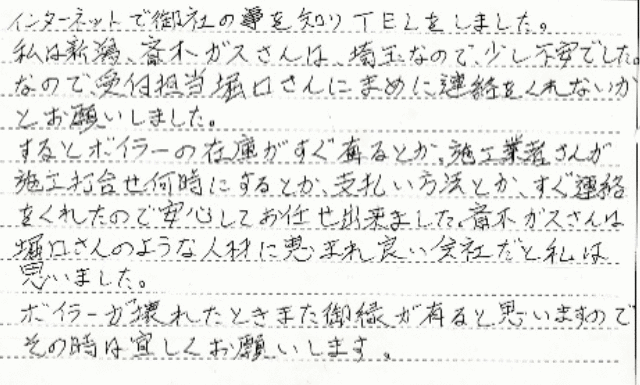 インターネットで御社の事を知りTELをしました。
私は新潟、斎木ガスさんは、埼玉なので、少し不安でした。
なので、受付担当堀口さんにまめに連絡をくれないか
とお願いしました。
するとボイラーの在庫がすぐ有るとか、施工業者さんが
施工打合せ何時にするとか、支払い方法とか、すぐ連絡
をくれたので安心してお任せ出来ました。斎木ガスさんは
堀口さんのような人材に恵まれ良い会社だと私は
思いました。
ボイラーが壊れたときまた御縁が有ると思いますので
その時は宜しくお願いします。